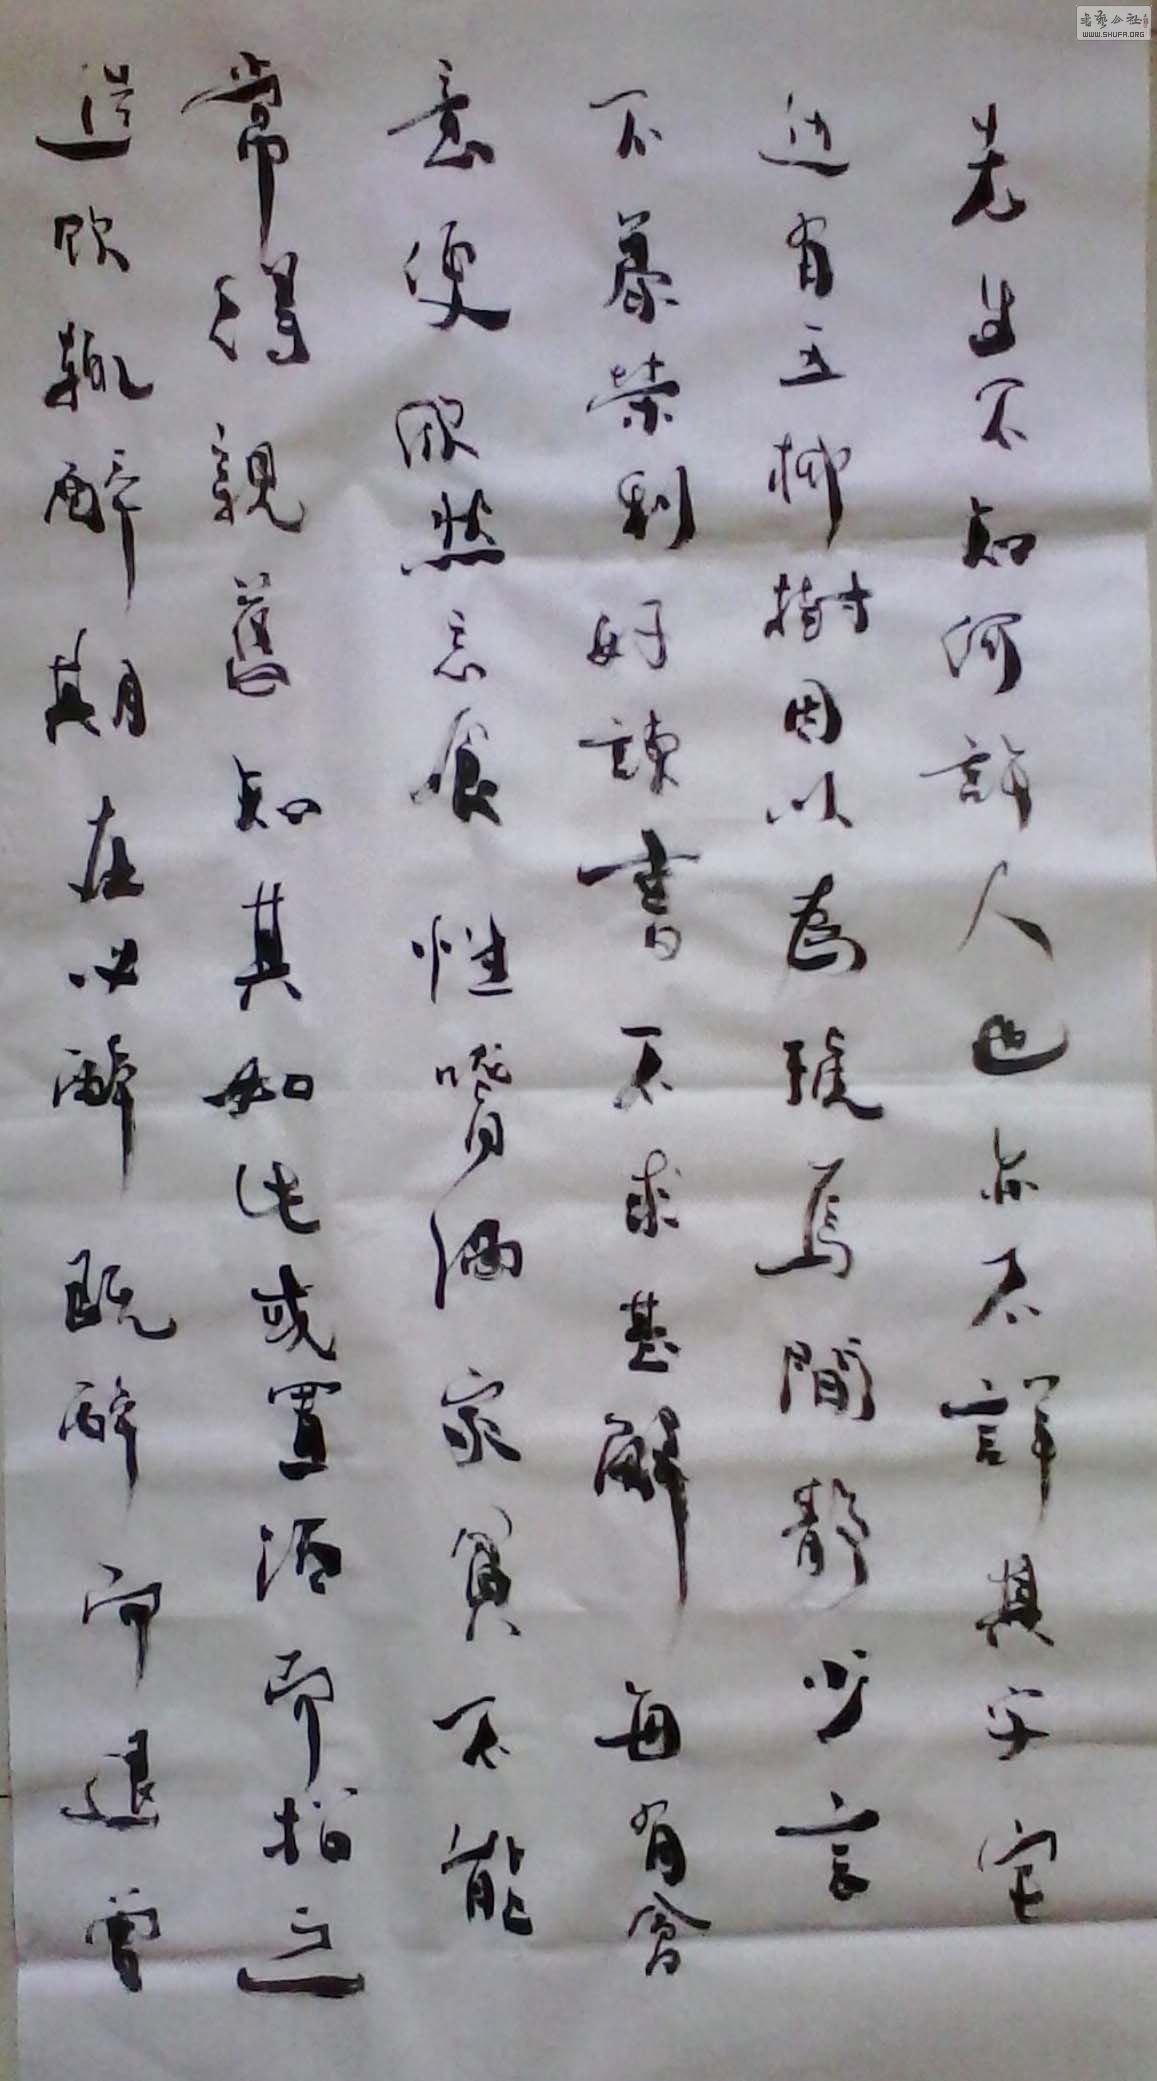 先生不知何許人也亦不詳其字宅
边有五柳樹因以為號焉間靜少言
不慕榮利好讀書不求甚解每有會
意便欣然忘食性嗜酒家貧不能
常得親舊知其如此或置酒而招之
造飲輒醉期在必醉既醉而退曾
书艺公社
WWW.SHUFA.ORG